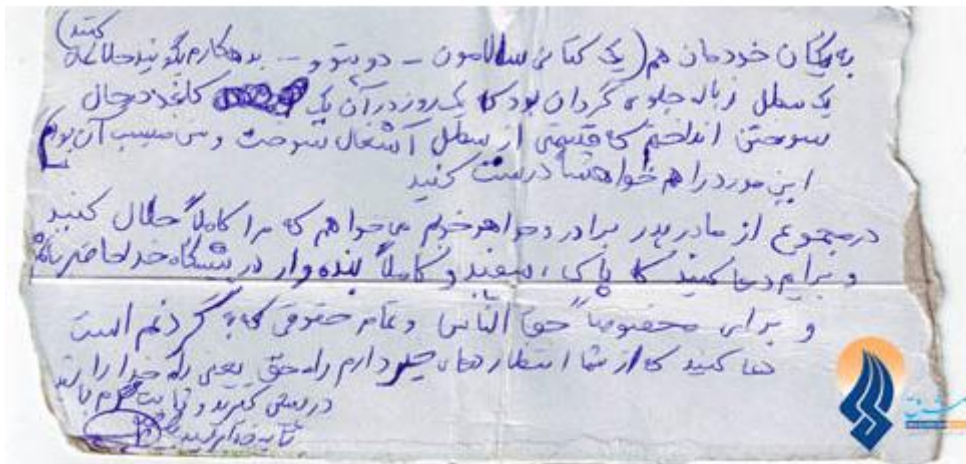 به یگان خودمان هم (یک کتانی سالامون - دو پتو و - بدهکارم بگوئید حلالم کنند)
یک سطل زباله جلوی گردان بود که یک روز در آن یک کاغذ در حال
سوختن انداختم که قسمتی از سطل آشغال سوخت و من مسبب آن بودم
این مورد را هم خواهشا درست کنید
در مجموع از مادر پدر برادر و خواهر خودم می خواهم که مرا کاملاً حلال کنید
و برایم دعا کنید که پاک، سفید و کاملاً بنده وار در پیشگاه خدا حاضر باشم
و برای مخصوصاً حق الناس و تمام حقوقی که به گردنم است
دعا کنید که از شما انتظارهای دارم راه حق یعنی راه خدا را
در پیش گیرید و ثابت قدم
تا به خدا برسید
مشرق